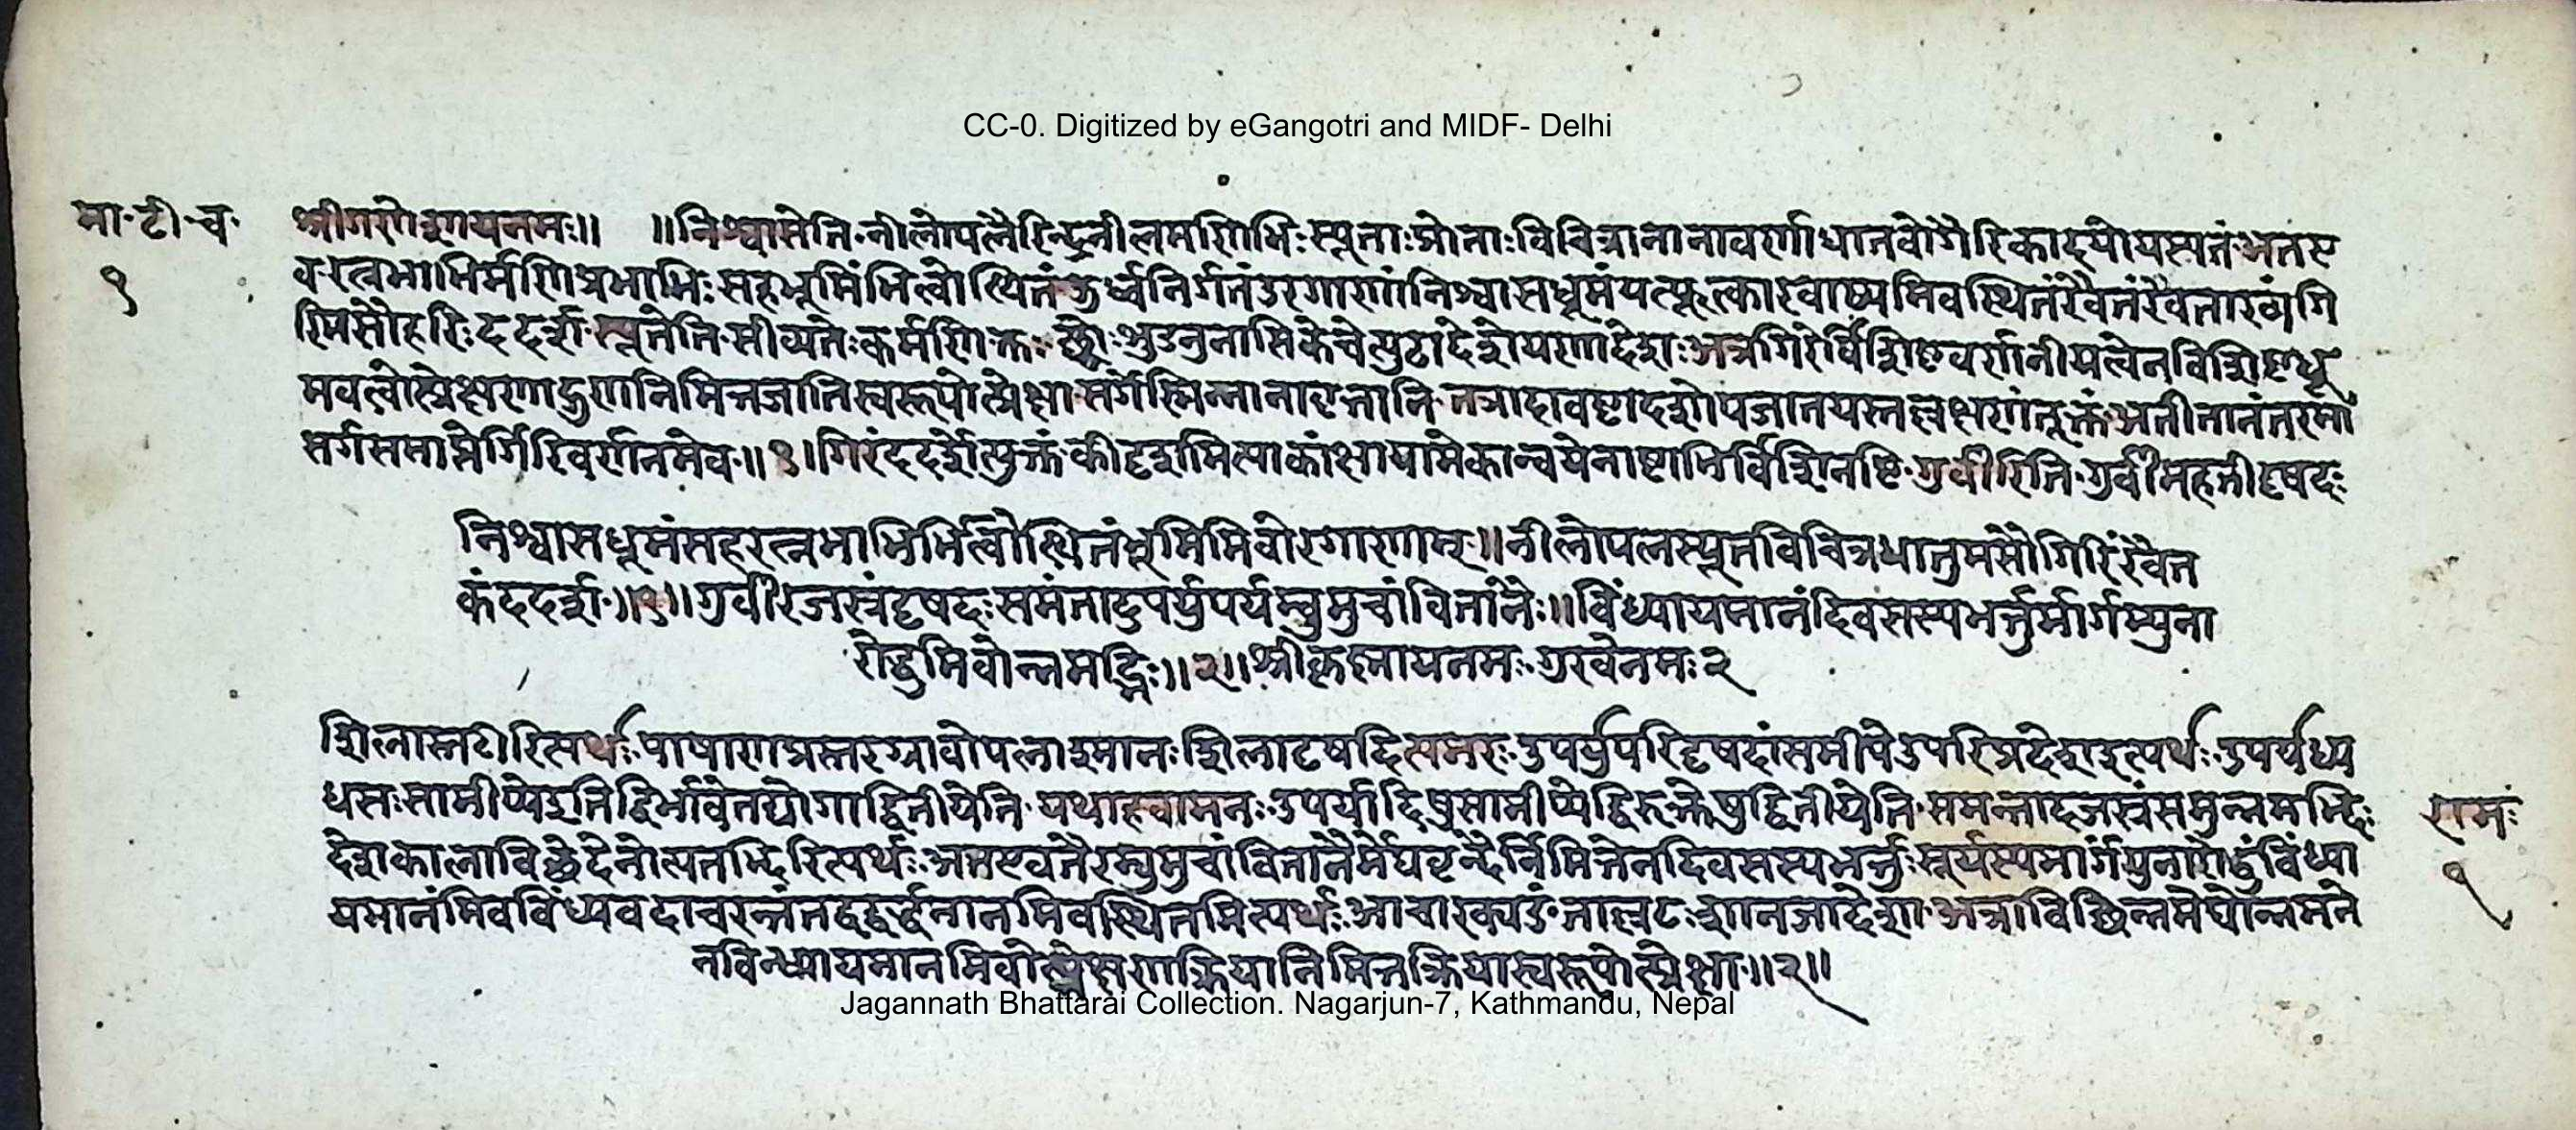 CC-0. Digitized by eGangotri and MIDF- Delhi
मा॰टी॰च॰
१
श्रीगणेशायनमः॥ ॥निश्वासेति॰नीलोपलैरिन्द्रनीलमणिभिः स्यूताःप्रोताःविचित्रानानावर्णाधातवोगैरिकादयोयस्यतं॰अतए
व॰रत्नभाभिर्मणिप्रभाभिः सहभूमिंभित्वोत्थितंऊर्ध्वनिर्गतंउरगाणांनिश्वासधूमंयत्फूत्कारवाष्पमिवस्थितंरैवतंरैवताख्यंगि
रिमसौहरिः ददर्श॰स्यूतेति॰सीव्यतेःकर्मणिक्तः च्छ्वोः शुडनुनासिकेचेत्यूठादेशेयणादेशः अत्रगिरेर्विशिष्टवर्णनीयत्वेनविशिष्टधू
मवत्वोत्प्रेक्षणाद्गुणनिमित्तजातिस्वरूपोत्प्रेक्षा॰सर्गेस्मिन्नानावृत्तानि॰तत्रादावष्टादशोपजातयस्तल्लक्षणंतूक्तं॰अतीतानंतरमा
सर्गसमाप्तेर्गिरिवर्णनमेव॰॥१॥गिरंददर्शेत्युक्तं॰कीदृशमित्याकांक्षायामेकान्वयेनाष्टाभिर्विशिनष्टि॰गुर्वीरिति॰गुर्वीर्महतीदृषदः
निश्वासधूमंसहरत्नभाभिर्भित्वोत्थितंभूमिमिवोरगाणाम्॥नीलोपलस्यूतविचित्रधातुमसौगिरिंरैवत
कंददर्श॰॥१॥गुर्वीरजस्रंदृषदः समंतादुपर्युपर्यम्बुमुचांवितानैः॥विंध्यायमानंदिवसस्यभर्त्तुर्मार्गम्पुना
रोद्धुमिवोन्नमद्भिः॥२॥श्रीकृष्णायनमः॰गुरवेनमः२
शिलास्तटीरित्यर्थः पाषाणप्रस्तरग्रावोपलाश्मानः शिलादृषदित्यमरः॰उपर्युपरिदृषदांसमीपेउपरिप्रदेशइत्यर्थः॰उपर्यध्य
धसः सामीप्येइतिद्विर्भावेतद्योगाद्द्वितीयेति॰यथाहवामनः॰उपर्यादिषुसामीप्येद्विरुक्तेषुद्वितीयेति॰समन्तादजस्रंसमुन्नमद्भिः
देशकालाविच्छेदेनोत्पतद्भिरित्यर्थः अतएवतैरम्बुमुचांवितानैर्मेघवृन्दैर्निमित्तेनदिवसस्यभर्त्तुः सूर्यस्यमार्गंपुनारोद्धुंविंध्या
यमानंमिवविंध्यवदाचरन्तंतद्वद्वर्द्धमानमिवस्थितमित्यर्थः आचारेक्यङं॰ताल्लटःशानजादेशः॰अत्राविच्छिन्नमेघोन्नमने
नविन्ध्यायमानमिवोत्प्रेक्षणाक्रियानिमित्तक्रियास्वरूपोत्प्रेक्षा॰॥२॥
रामः
१
Jagannath Bhattarai Collection. Nagarjun-7, Kathmandu, Nepal